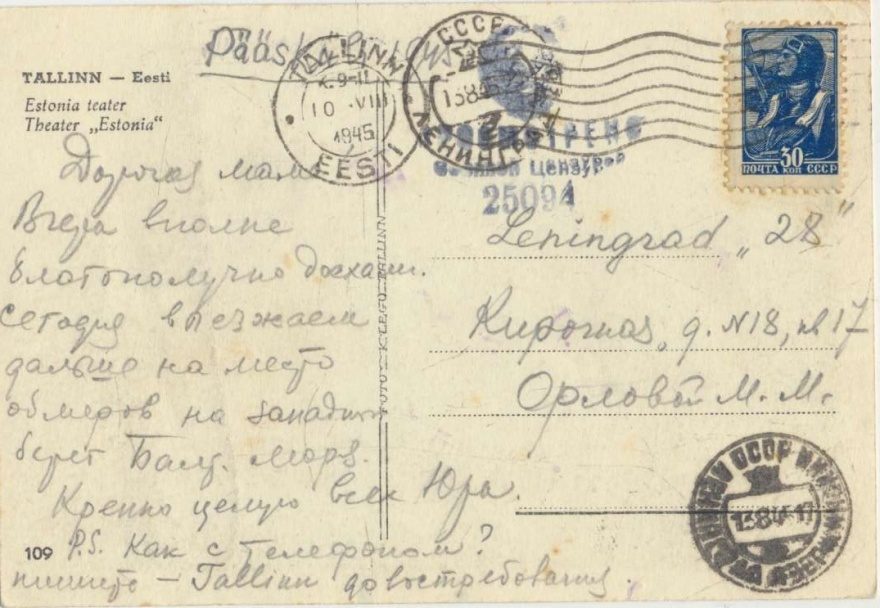 TALLINN — Eesti
Estonia teater
Theater „Estonia“
TALLINN
10 VIII
1945
EESTI
СССР
ЛЕНИНГРАД
Военной Цензурой
25094
30
КОП
ПОЧТА СССР
Дорогая мама
Вчера вполне
благополучно доехали.
Сегодня выезжаем
дальше на место
обмеров на западный
берег Балт. моря.
Крепко целую всех Юра.
P.S. Как с телефоном?
пишите – Tallinn до востребования.
109
Leningrad „28“
Кирочная, д. N18,
17
Орловой М. М.
СССР